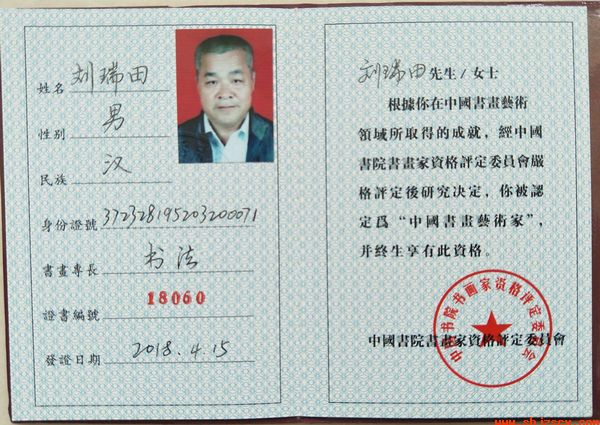 姓名 刘瑞田
性别 男
民族 汉
身份證號 372328195203200071
書畫專長 书法
證書編號 18060
發證日期 2018.4.15
刘瑞田先生/女士
根據你在中國書畫藝術
領域所取得的成就，經中國
書院書畫家資格評定委員會嚴
格評定後研究決定，你被認
定爲“中國書畫藝術家”，
并終生享有此資格。
中国书院书画家资格评定委员会
中國書院書畫家資格評定委員會